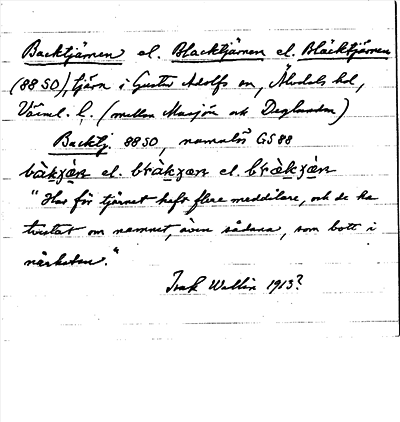 Backtjärnen el. Blacktjärnen el. Bläcktjärnen
(88 SO), tjärn i Gustav Adolfs sn, Älvdals hd,
Värml. l. (mellan och Deglunden)
Backtj. 88 SO, namnlös GS 88
"Har för tjärnet haft flera meddelare, och de ha
tvistat om namnet, även sådana, som bott i
närheten."
Isak Wallin 1913?